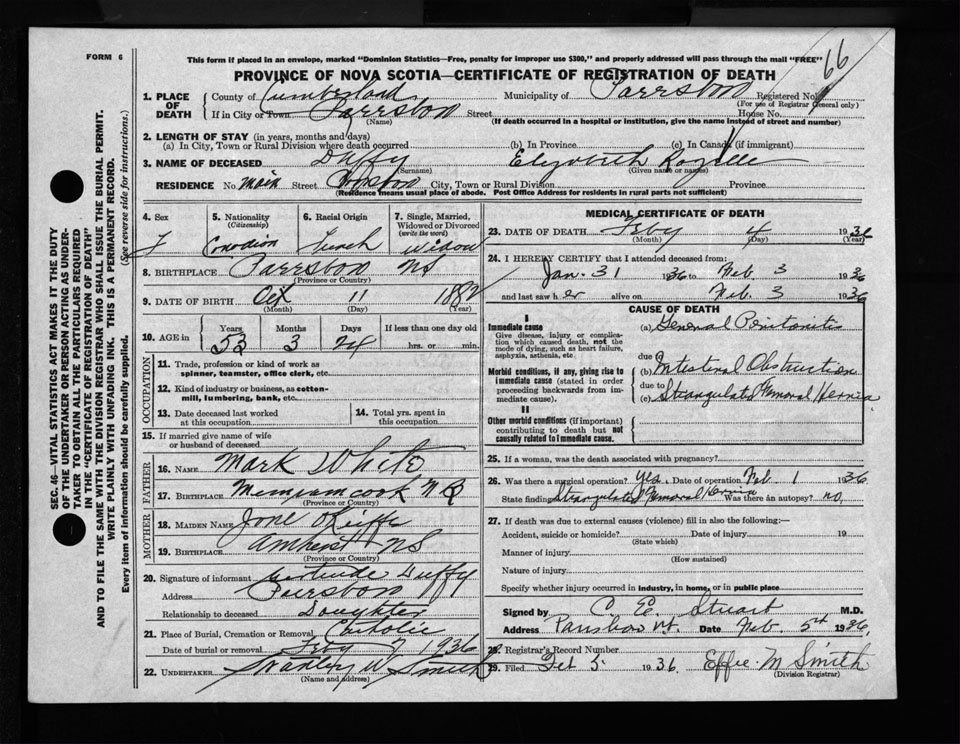 66
FORM 6
This form if placed in an envelope, marked "Dominion Statistics—Free, penalty for improper use $300," and properly addressed will pass through the mail "FREE"
PROVINCE OF NOVA SCOTIA—CERTIFICATE OF REGISTRATION OF DEATH
1. PLACE OF DEATH County of Cumberland Municipality of Parrsboro Registered No.
(For use of Registrar General only)
If in City or Town Parrsboro Street House No.
(Name) (If death occurred in a hospital or institution, give the name instead of street and number)
2. LENGTH OF STAY (in years, months and days)
(a) In City, Town or Rural Division where death occurred (b) In Province (c) In Canada (if immigrant)
3. NAME OF DECEASED Duffy Elizabeth Rozelle
(Surname) (Given name or names)
RESIDENCE No. Main Street City, Town or Rural Division Province
(Residence means usual place of abode. Post Office Address for residents in rural parts not sufficient)
4. Sex 5. Nationality (Citizenship) 6. Racial Origin 7. Single, Married, Widowed or Divorced (write the word)
F Canadian French Widow
8. BIRTHPLACE Parrsboro NS
(Province or Country)
9. DATE OF BIRTH Oct 11 1882
(Month) (Day) (Year)
10. AGE in Years Months Days If less than one day old
53 3 24 hrs. or min.
OCCUPATION
11. Trade, profession or kind of work as spinner, teamster, office clerk, etc.
12. Kind of industry or business, as cotton-mill, lumbering, bank, etc.
13. Date deceased last worked at this occupation 14. Total yrs. spent in this occupation
15. If married give name of wife or husband of deceased
FATHER
16. NAME Mark White
17. BIRTHPLACE Memramcook NB
(Province or Country)
MOTHER
18. MAIDEN NAME Jane OKeiffe
19. BIRTHPLACE Amherst NS
(Province or Country)
20. Signature of informant Gertrude Duffy
Address Parrsboro
Relationship to deceased Daughter
21. Place of Burial, Cremation or Removal Catholic
Date of burial or removal Feby 7 1936
22. UNDERTAKER W Smith
(Name and address)
MEDICAL CERTIFICATE OF DEATH
23. DATE OF DEATH Feby 4 1936
(Month) (Day) (Year)
24. I HEREBY CERTIFY that I attended deceased from:
Jan. 31 1936 to Feb. 3 1936
and last saw her alive on Feb. 3 1936
CAUSE OF DEATH
I
Immediate cause
Give disease, injury or complication which caused death, not the mode of dying, such as heart failure, asphyxia, asthenia, etc.
(a) General Peritonitis
due to
Morbid conditions, if any, giving rise to immediate cause (stated in order proceeding backwards from immediate cause).
(b) Intestinal Obstruction
due to
(c) Strangulated Femoral Hernia
II
Other morbid conditions (if important) contributing to death but not causally related to immediate cause.
25. If a woman, was the death associated with pregnancy?
26. Was there a surgical operation? Yes. Date of operation Feb 1 1936
State finding Strangulated Femoral Hernia Was there an autopsy? no
27. If death was due to external causes (violence) fill in also the following:—
Accident, suicide or homicide? Date of injury 19
(State which)
Manner of injury
(How sustained)
Nature of injury
Specify whether injury occurred in industry, in home, or in public place
Signed by C. E. Stuart M.D.
Address Parrsboro N.S. Date Feb. 5th 1936
28. Registrar's Record Number
29. Filed Feb 5 1936 Effie M Smith
(Division Registrar)
SEC. 46—VITAL STATISTICS ACT MAKES IT THE DUTY
OF THE UNDERTAKER OR PERSON ACTING AS UNDER-
TAKER TO OBTAIN ALL THE PARTICULARS REQUIRED
IN THE "CERTIFICATE OF REGISTRATION OF DEATH"
AND TO FILE THE SAME WITH THE DIVISION REGISTRAR WHO SHALL ISSUE THE BURIAL PERMIT.
WRITE PLAINLY WITH UNFADING INK. THIS IS A PERMANENT RECORD.
Every item of information should be carefully supplied. (See reverse side for instructions.)